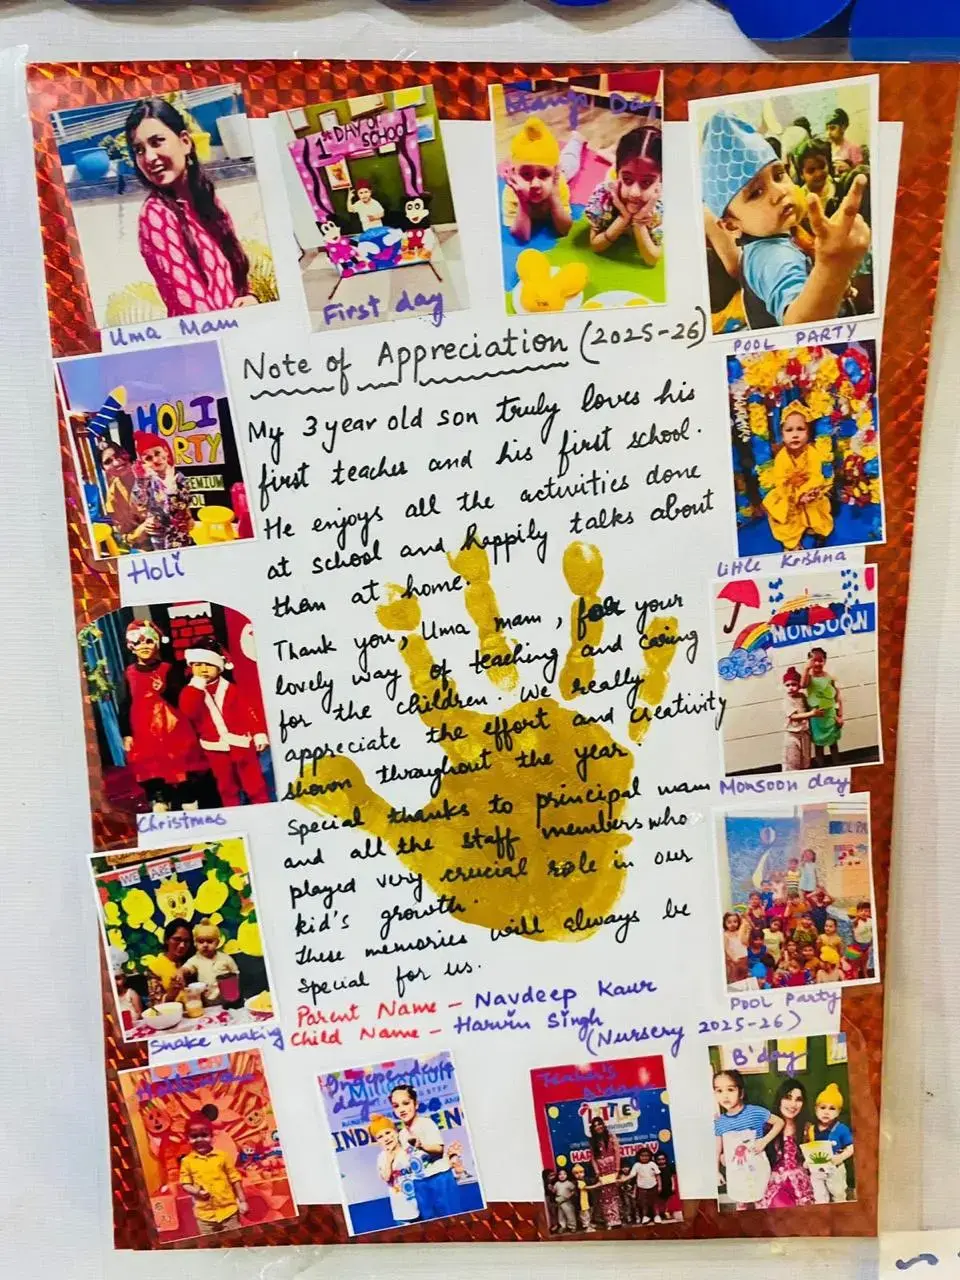 1st DAY OF SCHOOL
Mango Day
Uma Mam
First day
POOL PARTY
Note of Appreciation (2025-26)
HOLI
PARTY
My 3 year old son truly loves his
first teacher and his first school.
He enjoys all the activities done
at school and happily talks about
them at home.
Holi
Little Krishna
MONSOON
Thank you, Uma mam, for your
lovely way of teaching and caring
for the children. We really
appreciate the effort and creativity
shown throughout the year.
Christmas
Monsoon day
Special thanks to principal mam
and all the staff members who
played very crucial role in our
kid's growth.
These memories will always be
special for us.
WE ARE
Shake making
Pool Party
Parent Name - Navdeep Kaur
Child Name - Harvin Singh
(Nursery 2025-26)
Independence
day
Millennium
INDEPENDEN
Teacher's
B'day
LITTLE
HAPPY BIRTHDAY
B'day